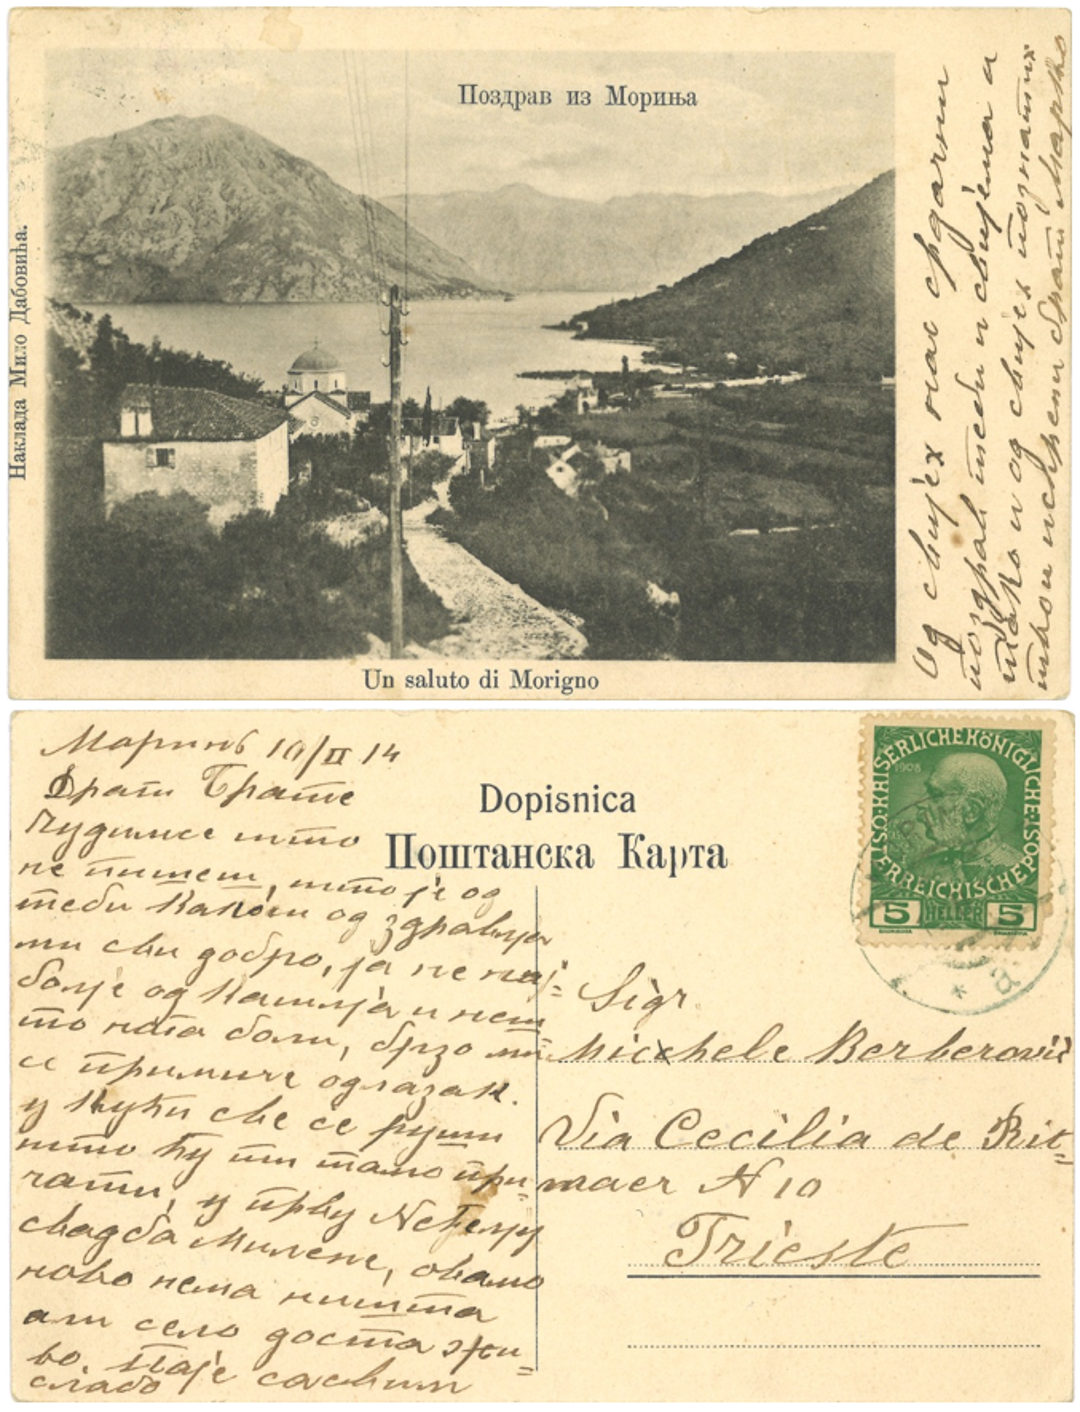 Поздрав из Мориња
Наклада Мило Дабовића.
Un saluto di Morigno
Од свијех нас срдачни
поздрав теби и свијема а
тако и од свијех познатих
твои искрени брат Марко
Маринь 10/II 14
Драги Брате
Чудимсе што
не пишеш, што је од
теби. Како си од здравља
ми сви добро, ја не нај=
боље од кашља и неш
то ната боли, брзо ми
се примиче одлазак.
у кући све се руши
што ћу ти тамо при=
чати, у прву Неђељу
свадба Милене, овамо
ново нема ништа
али село доста жи=
во. Паје сасвим
слабо
Dopisnica
Поштанска Карта
KAISERLICHE KÖNIGLICHE
ÖSTERREICHISCHE POST
1908
5 HELLER 5
* a
Sigr
Michele Berberović
Via Cecilia de Rit=
maer N 10
Trieste